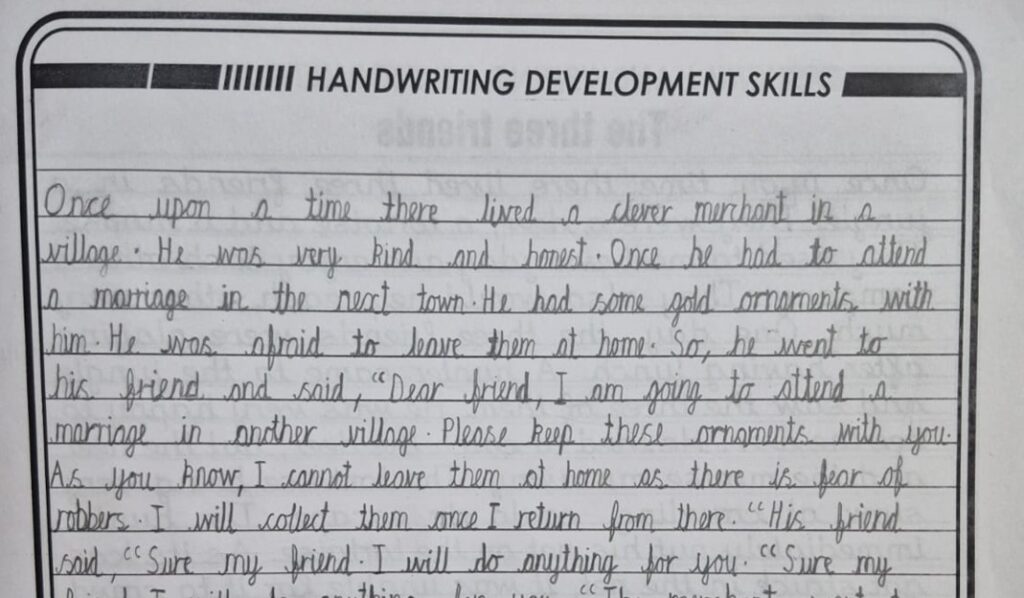 HANDWRITING DEVELOPMENT SKILLS
The three friends
Once upon a time there lived a clever merchant in a
village. He was very kind and honest. Once he had to attend
a marriage in the next town. He had some gold ornaments with
him. He was afraid to leave them at home. So, he went to
his friend and said, “Dear friend I am going to attend a
marriage in another village. Please keep these ornaments with you.
As you know, I cannot leave them at home as there is fear of
robbers. I will collect them once I return from there. “His friend
said, “Sure my friend. I will do anything for you. “Sure my